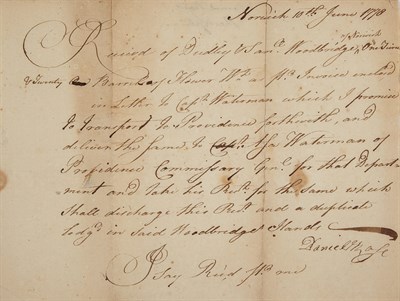 Norwich 10th June 1778
of Norwich
Receivd of Dudley & Saml. Woodbridge, One Hun
& Twenty Barrels of Flower Wt. as pr. Invoice inclosd
in Letter to Capt. Waterman which I promise
to transport to Providence forthwith, and
deliver the same to Capt. Asa Waterman of
Providence Commissary Genl. for that Depart-
ment and take his Rect. for the Same which
Shall discharge this Rect. and a duplicate
lodgd in Said Woodbridges Hands
Daniel
I Say Recd. pr. me